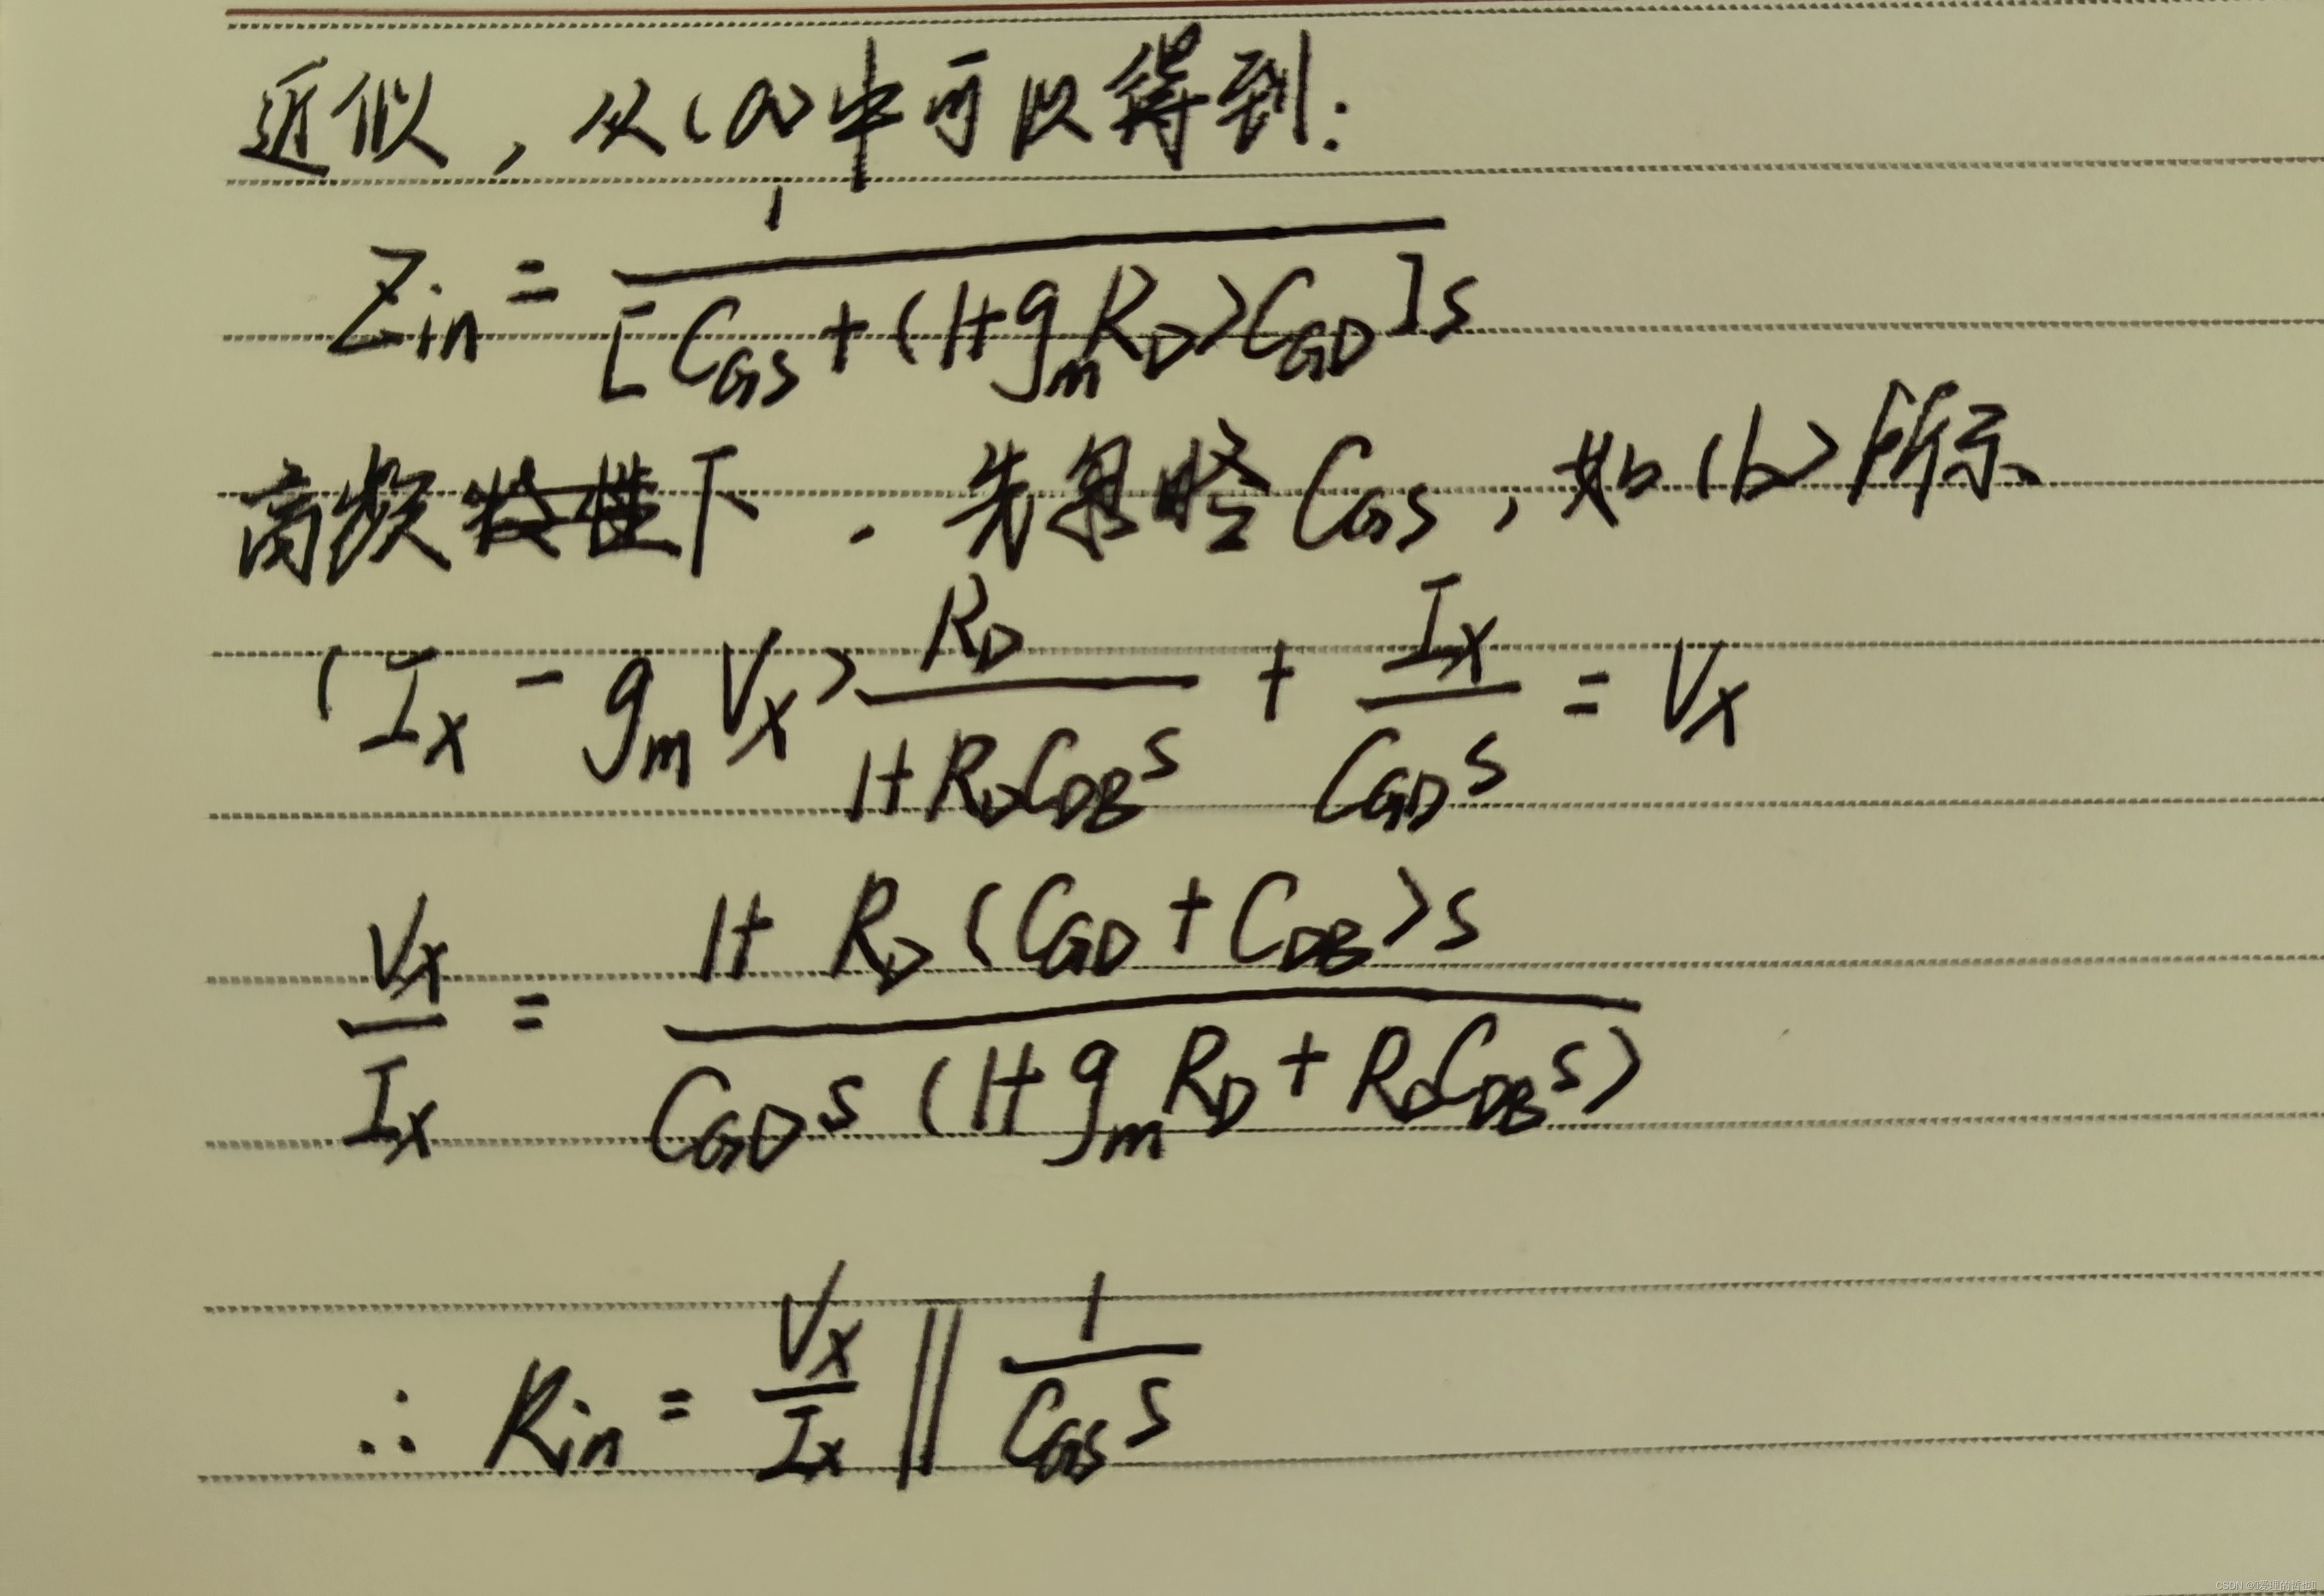 近似，从(a)中可以得到：
Zin = 1 / [CGS + (1+gmRD)CGD]s
高频特性下．先忽略CGS，如(b)所示
(IX - gmVX) RD / (1+RDCDBs) + IX / (CGDs) = VX
VX / IX = (1+RD(CGD+CDB)s) / (CGDs(1+gmRD+RDCDBs))
∴ Rin = VX / IX || 1 / (CGSs)